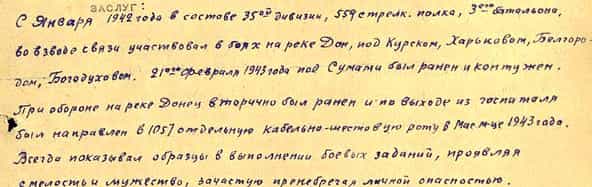 ЗАСЛУГ:
С Января 1942 года в составе 35ой дивизии, 559 стрелк. полка, 3его батальона,
во взводе связи участвовал в боях на реке Дон, под Курском, Харьковом, Белгоро-
дом, Богодуховом. 21ого февраля 1943 года под Сумами был ранен и контужен.
При обороне на реке Донец вторично был ранен и по выходе из госпиталя
был направлен в 1057 отдельную кабельно-шестовую роту в Мае м-це 1943 года.
Всегда показывал образцы в выполнении боевых заданий, проявляя
смелость и мужество, зачастую пренебрегая личной опасностью.